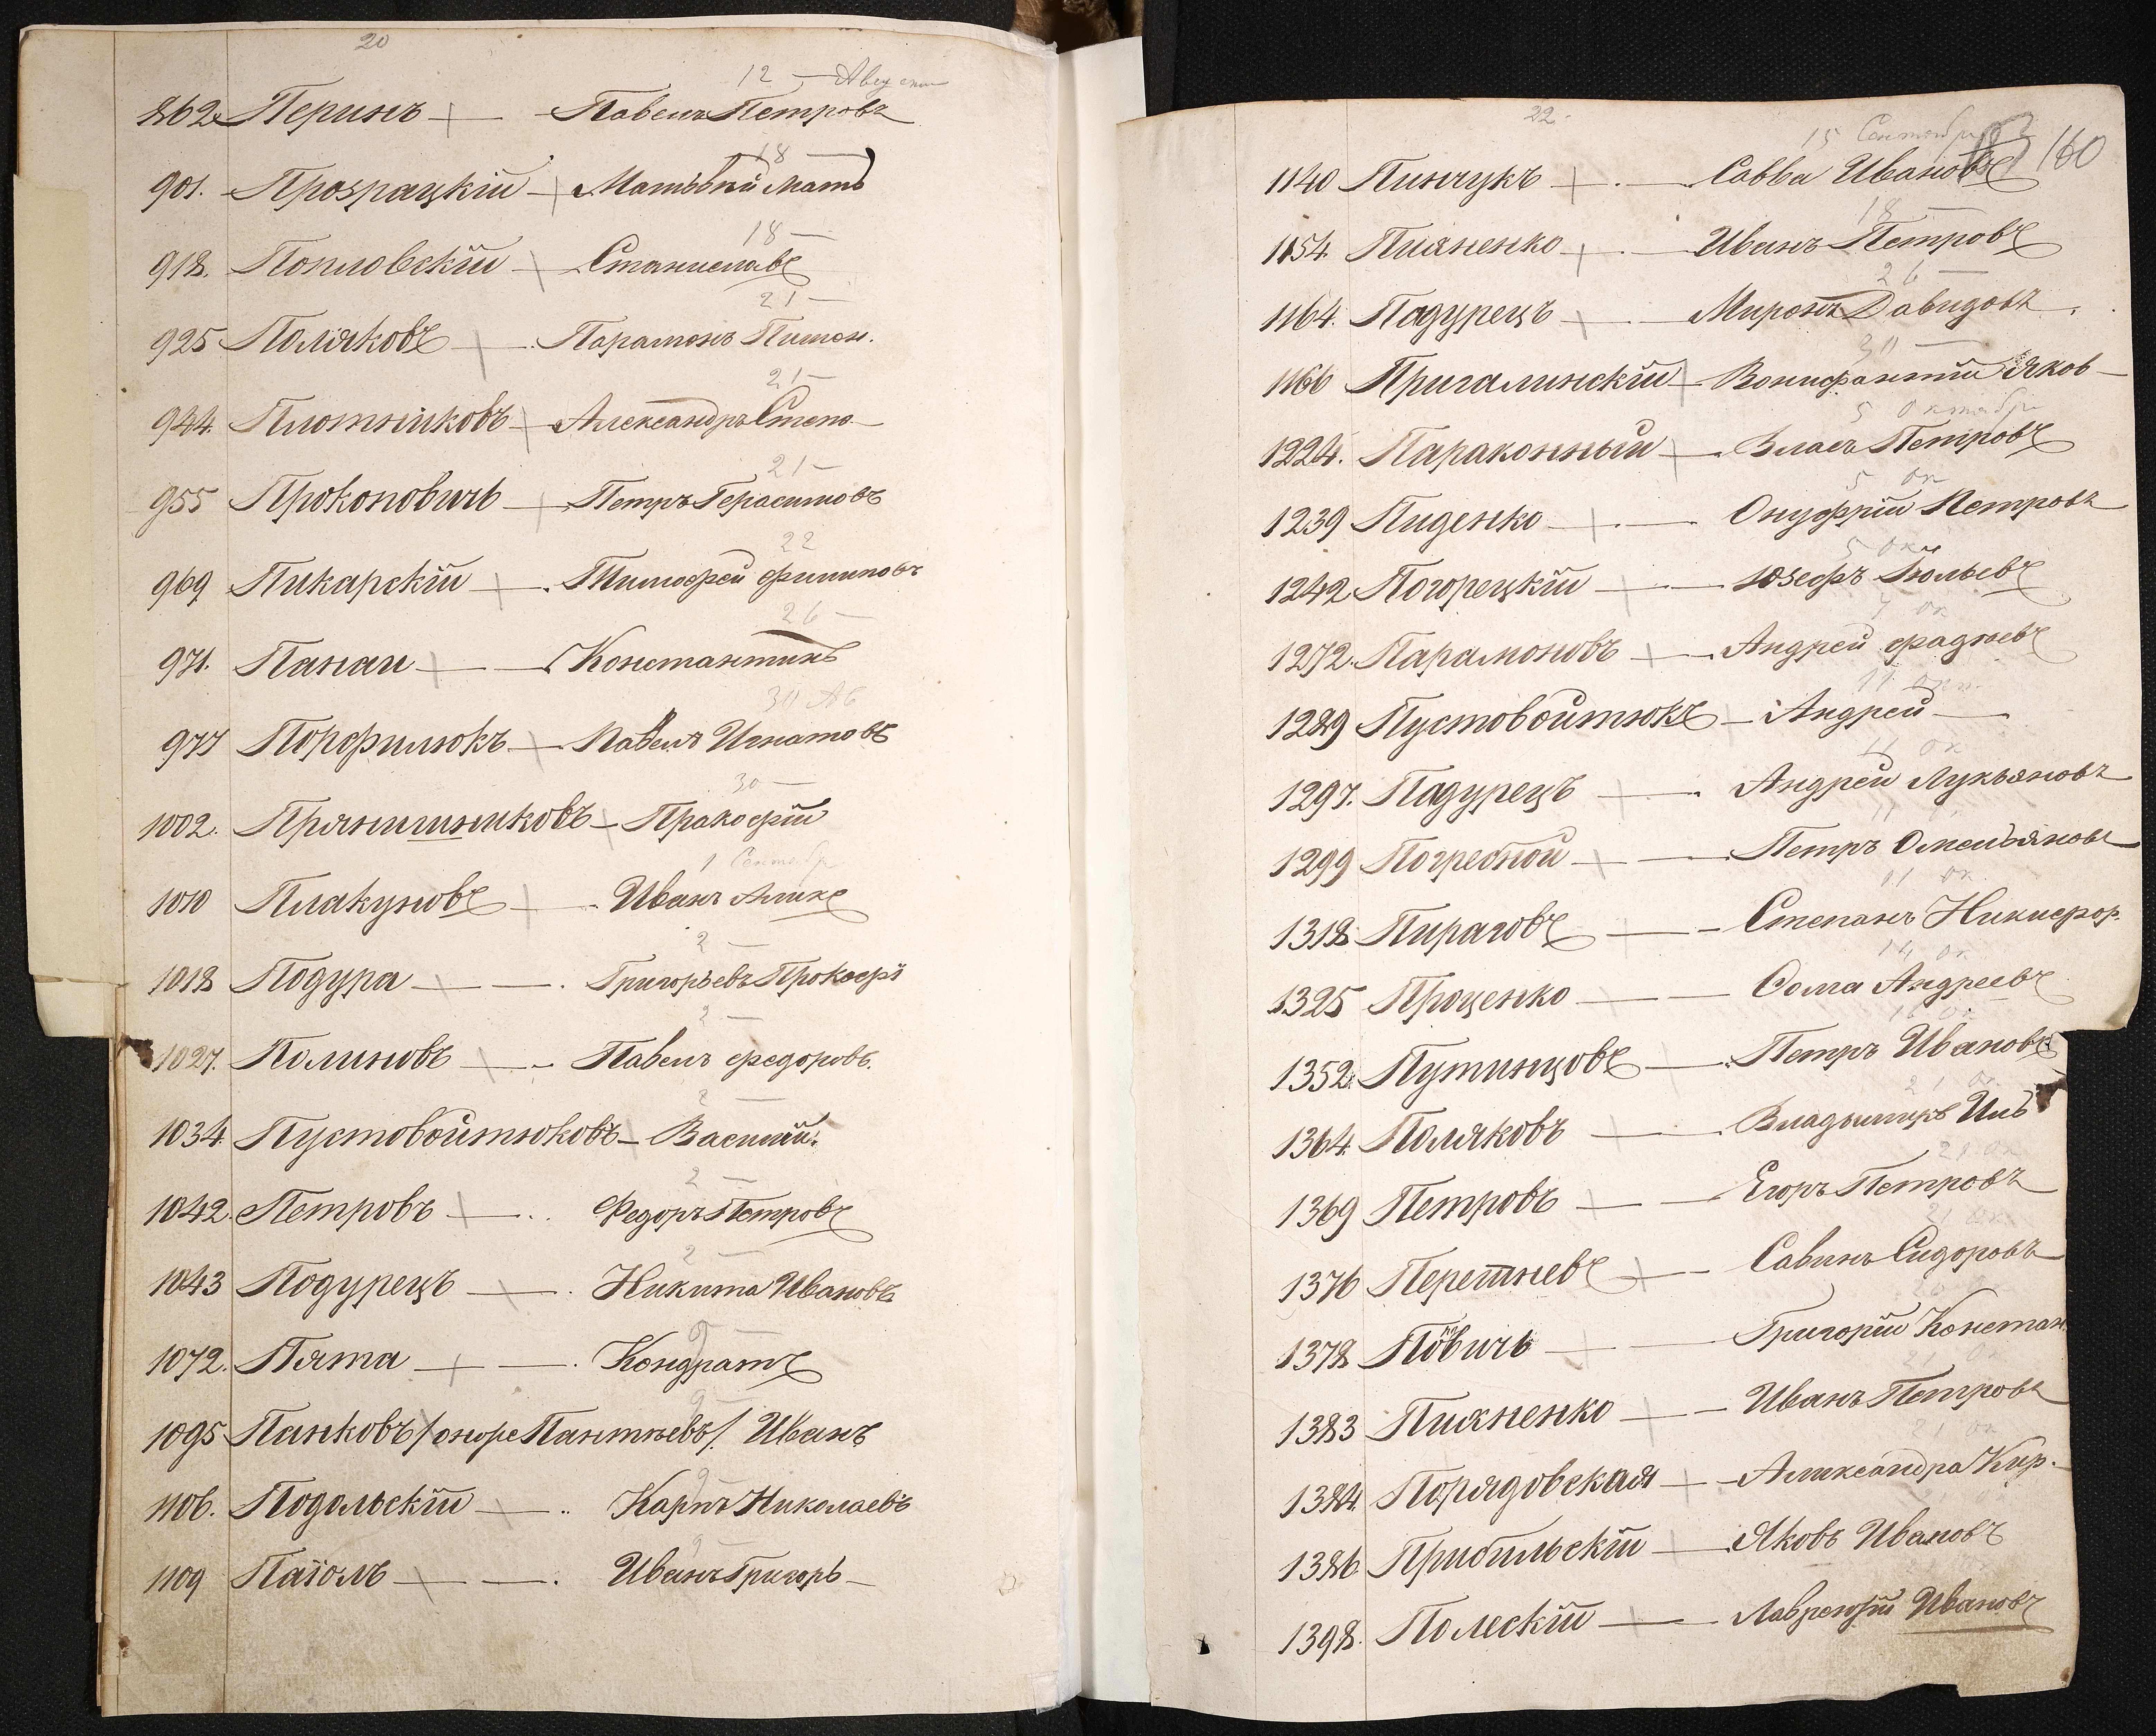 20
12 — Август
862 Перинъ — Павелъ Петровъ
18 —
901. Прозрацкій — Матвѣй Матв
18 —
918. Попловскій — Станиславъ
21 —
925 Поляковъ — Парамонъ Пимон.
21 —
944. Плотниковъ — Александръ Степа —
21 —
955 Прокоповичъ — Петръ Герасимовъ
22
969 Пикарскій — Тимофей Филиповъ
26 —
971. Панаи — Константинъ
30 Ав
977 Порфилюкъ — Павелъ Игнатовъ
30 —
1002. Прянишниковъ — Пракофій
1 Сентябр
1010 Плакуновъ — Иванъ Алик
2 —
1018 Подура — Григорьевъ Прокофі
2 —
1027. Полиновъ — Павелъ Федоровъ.
2 —
1034. Пустовойтюковъ — Василій.
2 —
1042. Петровъ — Федоръ Петровъ
2 —
1043 Подурецъ — Никита Ивановъ
9 —
1072. Пята — Кондратъ
9 —
1095 Панковъ /онъже Пантѣевъ/ Иванъ
9 —
1106. Подольскій — Карпъ Николаевъ
9 —
1109 Паіолъ — Иванъ Григорь —
22.
15 Сентябр
160
1140 Пинчукъ — Савва Ивановъ
18 —
1154. Пияненко — Иванъ Петровъ
26 —
1164. Падурецъ — Миронъ Давидовъ.
30 —
1166 Пригалинскій — Вонифантій Яков —
5 Октябр
1224. Параконный — Власъ Петровъ
5 Ок
1239 Пиденко — Онуфрій Петровъ
5 Ок
1242 Погорецкій — Юзефъ Юльевъ
7 Ок
1272. Парамоновъ — Андрей Фадѣевъ
11 Окт.
1289 Пустовойтюкъ — Андрей —
11 Ок
1297. Падурецъ — Андрей Лукьяновъ
11 Ок
1299 Погребной — Петръ Омельяновъ
11 Ок.
1318 Пираговъ — Степанъ Никифор.
14 Ок
1325 Проценко — Сома Андреевъ
16 Ок
1352. Путинцовъ — Петръ Ивановъ
21 Ок
1364. Поляковъ — Владымиръ Иль
21 Ок
1369 Петровъ — Егоръ Петровъ
21 Ок.
1376 Перешневъ — Савинъ Сидоровъ
1378 Повичъ — Григорій Констан
21 Ок
1383 Пияненко — Иванъ Петровъ
21 Ок
1384. Порядовская — Александра Кир.
1386. Прибильскій — Яковъ Ивановъ
1398. Полескій — Лаврентій Ивановъ